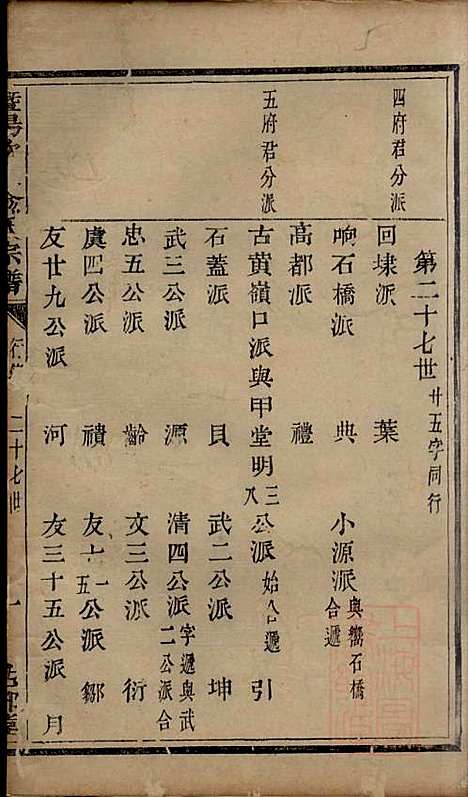 第二十七世 廿五字同行
四府君分派
回埭派 葉
响石橋派 典 小源派 與嚮石橋合遞
高都派 禮
五府君分派
古黄嶺口派與甲堂明三八公派 始合遞 引
石蓋派 貝 武二公派 坤
武三公派 源 清四公派 字遞與武二公派合
忠五公派 齡 文三公派 衍
虞四公派 積 友十一五公派 鄒
友廿九公派 河 友三十五公派 月
宗譜
二十七世
一